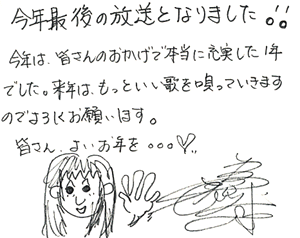 今年最後の放送となりました!!
今年は、皆さんのおかげで本当に充実した1年
でした。来年は、もっといい歌を唄っていきます
のでよろしくお願いします。
皆さん、よいお年を...♡